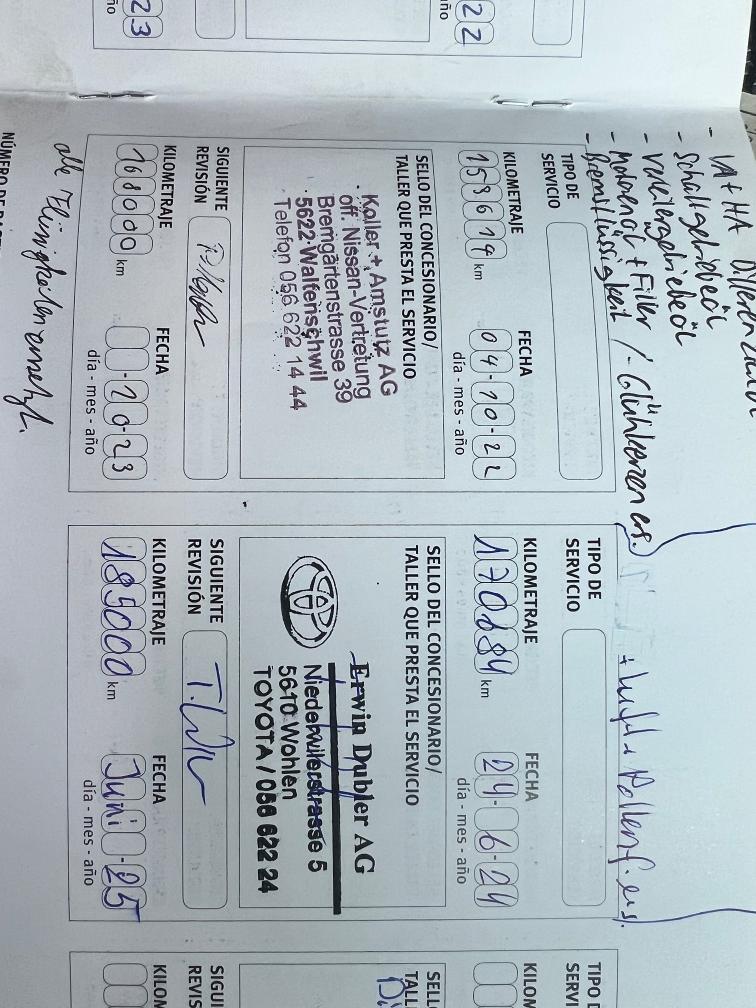 23
ño
22
ño
- VA + HA
- Schaltgetriebeöl
- Verteilergetriebeöl
- Motorenöl + Filter / - Glühkerzen ers.
- Bremsflüssigkeit
TIPO DE
SERVICIO
KILOMETRAJE
FECHA
158614 km
04-10-22
día - mes - año
SELLO DEL CONCESIONARIO/
TALLER QUE PRESTA EL SERVICIO
Koller + Amstutz AG
off. Nissan-Vertretung
Bremgartenstrasse 39
5622 Waltenschwil
Telefon 056 622 14 44
SIGUIENTE
REVISIÓN
KILOMETRAJE
FECHA
168000 km
-10-23
día - mes - año
alle Flüssigkeiten ersetzt.
NÚMERO DE
+ Luft + Pollenf. ers.
TIPO DE
SERVICIO
KILOMETRAJE
FECHA
170184 km
24-6-24
día - mes - año
SELLO DEL CONCESIONARIO/
TALLER QUE PRESTA EL SERVICIO
Erwin Dubler AG
Niederwilerstrasse 5
5610 Wohlen
TOYOTA / 056 622 24
SIGUIENTE
REVISIÓN
KILOMETRAJE
FECHA
185000 km
Juni -25
día - mes - año
TIPO D
SERVI
KILOM
SELL
TALL
SIGUI
REVIS
KILOM